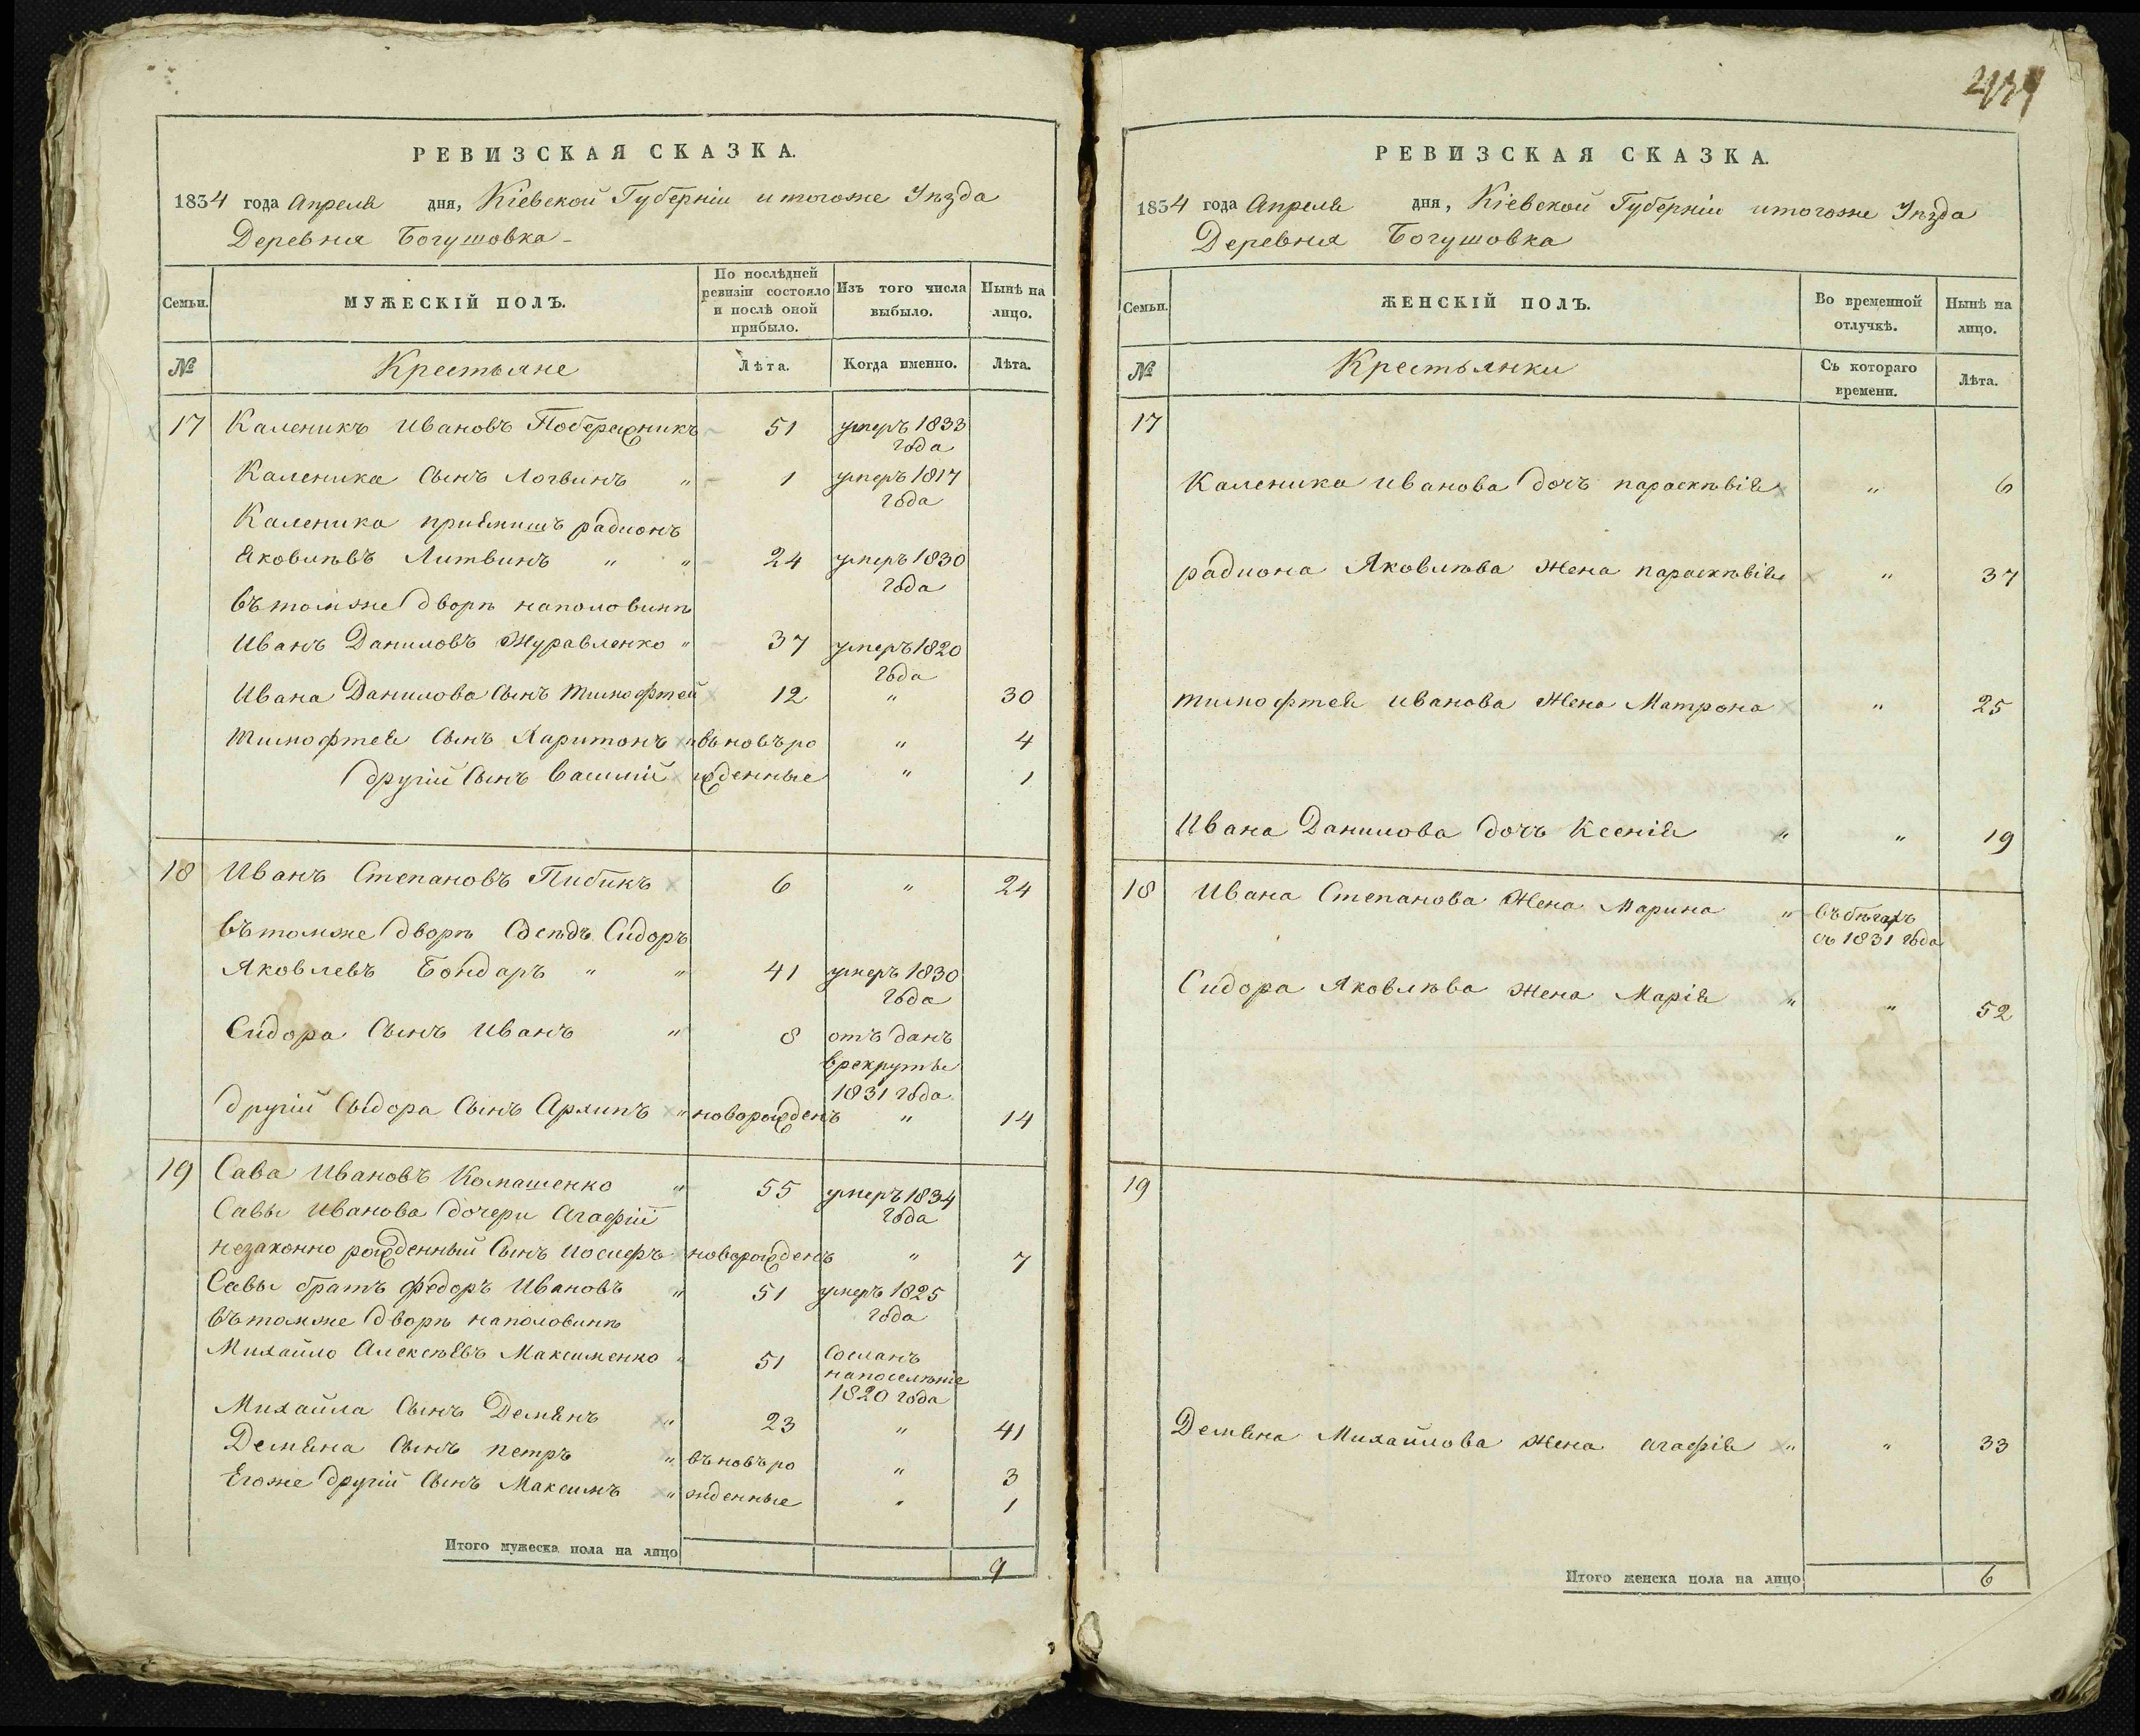 РЕВИЗСКАЯ СКАЗКА.
1834 года Апреля дня, Кіевской Губерніи и тогоже Уѣзда
Деревня Богушовка
Семьи.
МУЖЕСКІЙ ПОЛЪ.
По послѣдней ревизіи состояло и послѣ оной прибыло.
Изъ того числа выбыло.
Нынѣ на лицо.
№
Крестьяне
Лѣта.
Когда именно.
Лѣта.
17 Каленикъ Ивановъ Побережникъ 51 умеръ 1833
года
Каленика Сынъ Логвинъ " 1 умеръ 1817
года
Каленика приемишъ радионъ
Яковлѣвъ Литвинъ " " 24 умеръ 1830
года
въ томже дворѣ наполовинѣ
Иванъ Даниловъ Журавленко " 37 умеръ 1820
года
Ивана Данилова Сынъ тимофтей 12 " 30
тимофтея Сынъ Харитонъ " въновъро " 4
другій Сынъ василій жденные " 1
18 Иванъ Степановъ Пибикъ 6 " 24
въ томже дворѣ Сосѣдъ Сидоръ
Яковлевъ Бондаръ " " 41 умеръ 1830
года
Сидора Сынъ Иванъ " 8 отъ данъ
врекруты
1831 года
другій Сыдора Сынъ Архипъ " новорожденъ " 14
19 Сава Ивановъ Комашенко " 55 умеръ 1834
года
Савы Иванова дочери Агафіи
незаконно рожденный Сынъ Иосифъ новорожденъ " 7
Савы братъ федоръ Ивановъ " 51 умеръ 1825
года
въ томже дворѣ наполовинѣ
Михайло Алексѣевъ Максименко " 51 Сосланъ
напоселѣніе
1820 года
Михайла Сынъ Демянъ " 23 " 41
Демяна Сынъ петръ " въновъро " 3
Егоже другій Сынъ Максимъ " жденные " 1
Итого мужеска пола на лицо 9
2434
РЕВИЗСКАЯ СКАЗКА.
1834 года Апреля дня, Кіевской Губерніи итогоже Уѣзда
Деревня Богушовка
Семьи.
ЖЕНСКІЙ ПОЛЪ.
Во временной отлучкѣ.
Нынѣ на лицо.
№
Крестьянки
Съ котораго времени.
Лѣта.
17
Каленика Иванова дочъ параскѣвія " 6
радиона Яковлѣва жена параскѣвія " 37
тимофтея иванова Жена Матрона " 25
Ивана Данилова дочъ Ксенія " " 19
18 Ивана Степанова Жена Марина " въ бѣгахъ
съ 1831 года
Сидора Яковлѣва жена Марія " " 52
19
Демяна Михайлова жена агафія " " 33
Итого женска пола на лицо 6